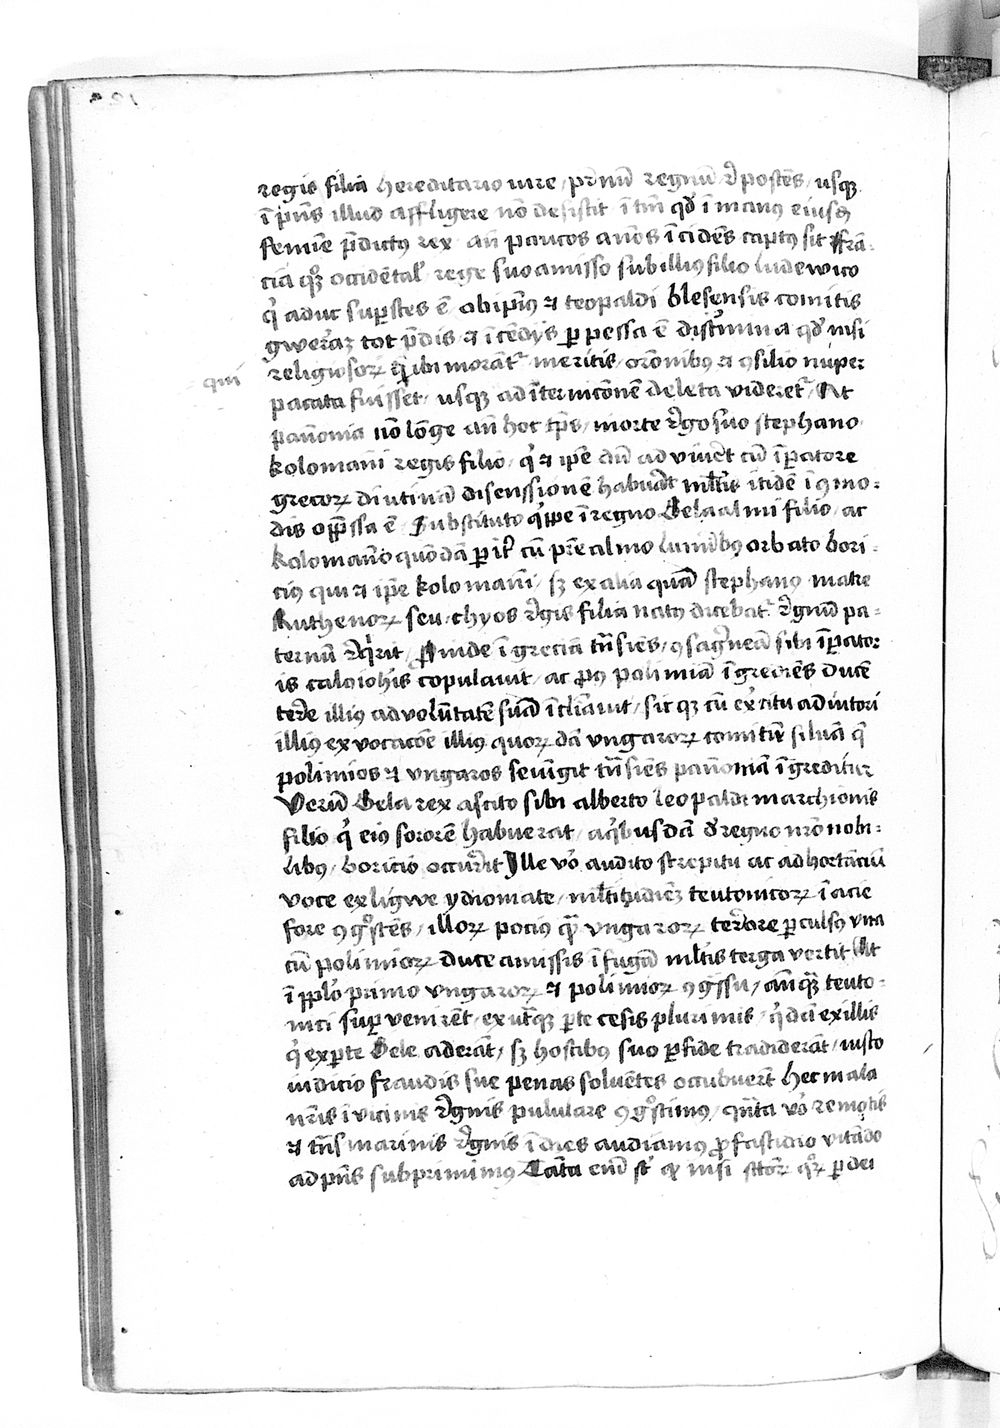 regis filiā hereditario iure / prīnū regnū r̄postēs / usq3
ī p̄ns illud affligere nō desistit / ī tm̄ qd̄ ī manꝰ eiusdē
femīe p̄dictꝰ rex añ paucos añōs īcidēs captꝰ sit ffrā-
cia qꝫ occidētal' rege suo amisso sub illiꝰ filio ludewico
q̄ aduc sup̄stes ē ab ip̄iꝰ ⁊ teopaldi blesensis comitis
gwerꝭ tot p̄dis ⁊ īcēdijs ꝑpessa ē discrīmina qd̄ nisi
religiosoꝝ q̄ ibi morāt᷑ meritis orōnibꝰ ⁊ ꝯsilio nuper
qui
pacata fuisset / usq3 ad īternicōnē deleta videret᷑ At
pañonia nō lōnge añ hoc tp̄s / morte r̄go suo stephano
kolomāni regis filio / q̄ ⁊ ip̄e dū adviv̄et cū īp̄atore
grecoꝝ diutinā disenssionē habu̅it ml̄tis itidē īꝯmo-
dis opp̄ssa ē Substituto q̄ppe ī regno Bela almi filio / ac
kolomāno quōdā ꝑit̄ cū pr̄e almo luminibꝰ orbato bori-
ciꝰ qui ⁊ ip̄e kolomāni / sꝫ ex alia quā stephanꝰ matre
Ruthenoꝝ seu chyos r̄gis filia natꝰ dicebat᷑ r̄gnū pa-
ternū r̄q̄rit / ꝓinde ī greciā tn̄siēs / ꝯsagwineā sibi īp̄ator
is caloiohis copulavit / ac ꝓꝰ polimiā īgrediēs ducē
terr̄e illiꝰ ad volūtatē suā īclīavit / sicqꝫ cū ex̄citu adiutori
illiꝰ ex vocacōe illiꝰ quoꝝdā vngaroꝝ comitū silvā q̄
polimios ⁊ vngaros seiūgit tn̄siēs pañoniā īgreditur
Verū Bela rex ascito sibi alberto leopaldi marchionis
filio q̄ eiꝰ sororē habuerat / a q̄busdā d̄ regno nr̄o nobi-
libꝰ / boricio occurrit Ille v̄o audito strepitu ac adhortāciū
voce ex ligwe ydiomate / ml̄titudiēꝫ teutonicoꝝ ī acie
fore ꝯgnostēs / illoꝝ pociꝰ q̄ꝫ vngaroꝝ terrore ꝑculsꝰ vna
cū polimioꝝ duce amissis ī fugā ml̄tis terga vertit At
ī ip̄o primo vngaroꝝ ⁊ polimioꝝ ꝯgssu / añq̄ꝫ teuto-
nici sup̄venirēt / ex ut̄qꝫ ꝑte cesis plurimis / q̄dā ex illis
q̄ ex ꝑte Bele aderāt / sꝫ hostibꝰ suo ꝑfide tradiderāt / iusto
iudicio fraudis sue penas solvētes occubuerūt hec mala
nr̄is ī vicinis r̄gnis pululare ꝯgnoscimꝰ / qn̄ta v̄o remotis
⁊ tn̄smarinis r̄gnis ī dies audiamꝰ ꝓ fastidio vitādo
ad p̄ns subprimimꝰ Tāta enī st̄ qꝫ nisi sctoꝝ qoꝝ ꝑ dei